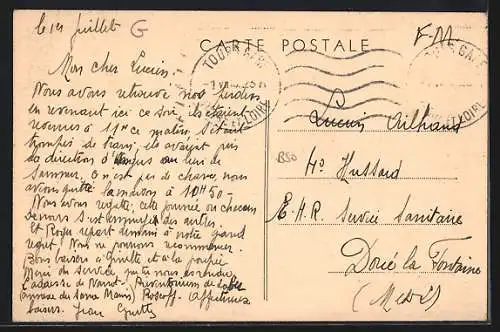 le 1er juillet
G
CARTE POSTALE
F.M.
TOURS GARE
INDRE ET LOIRE
Mon cher Lucien
Nous avons retrouvé nos
en revenant ici ce soir, ils étaient
revenus à 11h ce matin, s'étant
trompés de train, ils avaient pris
la direction d' au lieu de
Saumur. C'est pas de chance, nous
avons quitté la maison à 10H50 -
Nous avons regretté cette journée où chacun
de nous s'est des autres.
Et Roger repart demain à notre grand
regret. Nous ne pouvons recommencer.
Bons baisers à Ginette et à la poupée
Merci du service que tu nous
L'adresse de : Sanatorium de
Roscoff. Affectueux
baisers. Jean Ginette
Lucien Ailhaud
4e Hussard
E.H.R. Service Sanitaire
Doué la Fontaine
(M et L)